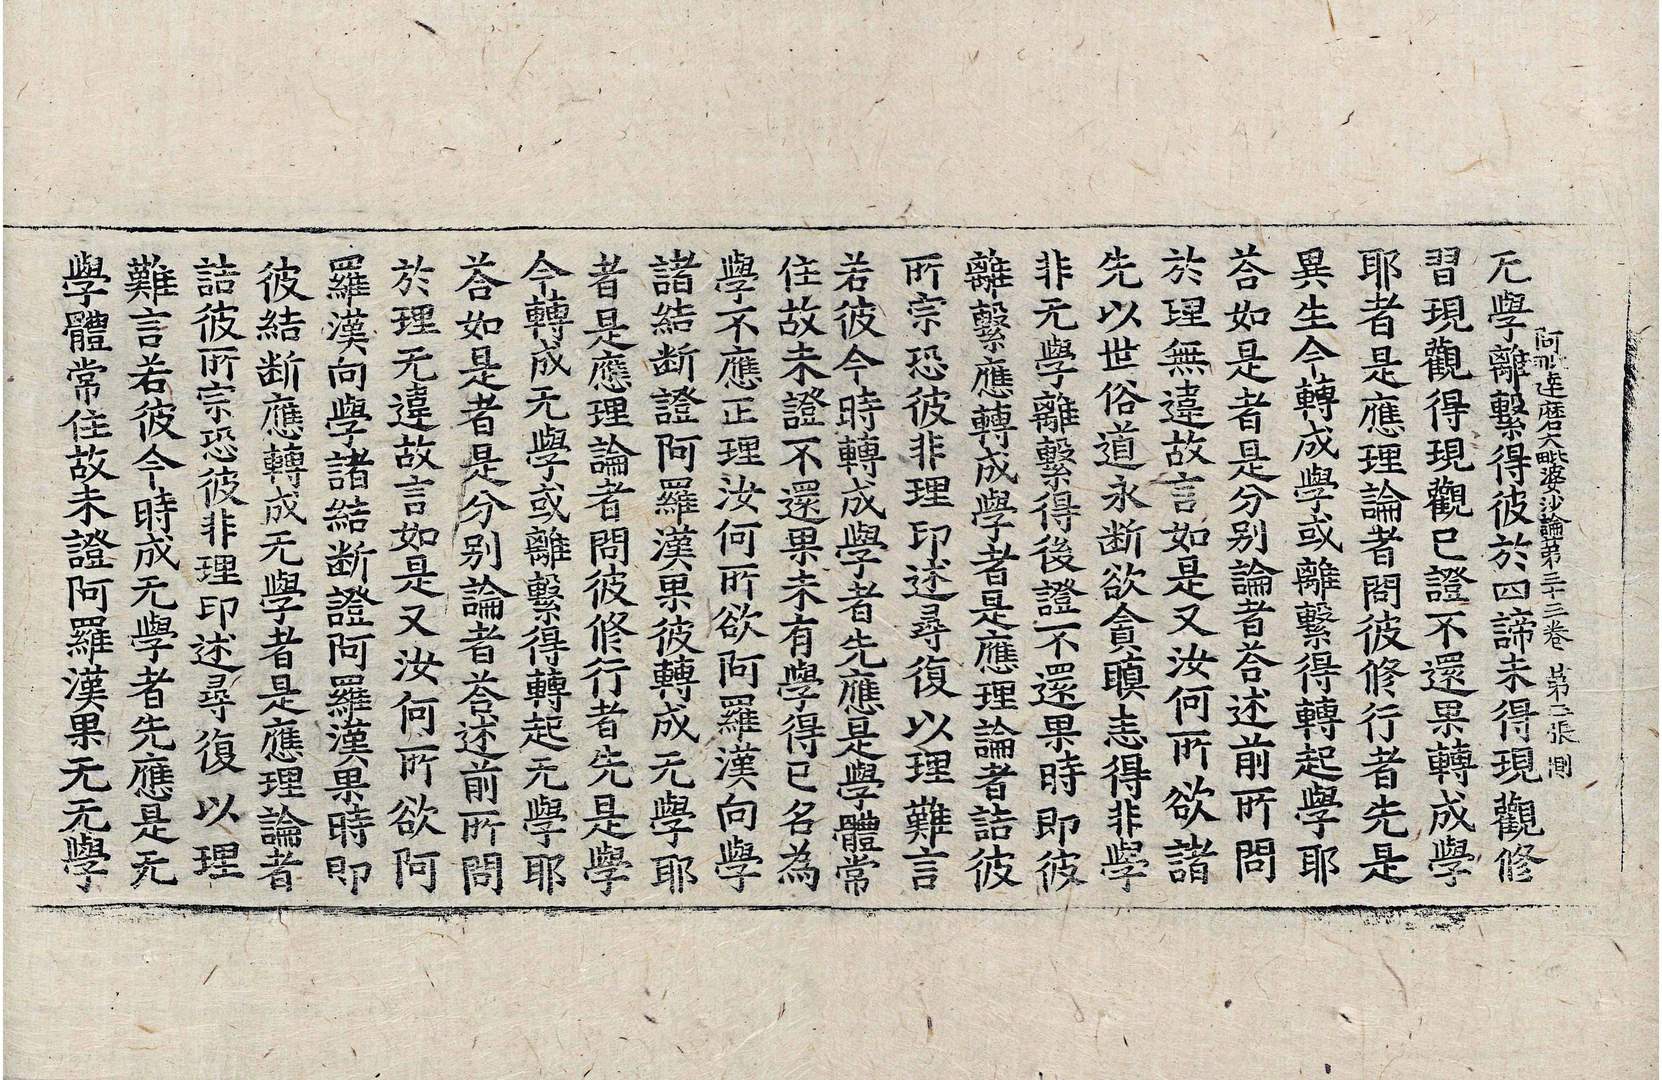 阿毗達磨大毗婆沙論第三十三卷 第二張 惻
无學離繫得彼於四諦未得現觀修
習現觀得現觀已證不還果轉成學
耶者是應理論者問彼修行者先是
異生今轉成學或離繫得轉起學耶
荅如是者是分别論者荅述前所問
於理無違故言如是又汝何所欲諸
先以世俗道永斷欲貪瞋恚得非學
非无學離繫得後證不還果時即彼
離繫應轉成學者是應理論者詰彼
所宗恐彼非理印述尋復以理難言
若彼今時轉成學者先應是學體常
住故未證不還果未有學得已名為
學不應正理汝何所欲阿羅漢向學
諸結断證阿羅漢果彼轉成无學耶
者是應理論者問彼修行者先是學
今轉成无學或離繫得轉起无學耶
荅如是者是分别論者荅述前所問
於理无違故言如是又汝何所欲阿
羅漢向學諸結断證阿羅漢果時即
彼結断應轉成无學者是應理論者
詰彼所宗恐彼非理印述尋復以理
難言若彼今時成无學者先應是无
學體常住故未證阿羅漢果无无學